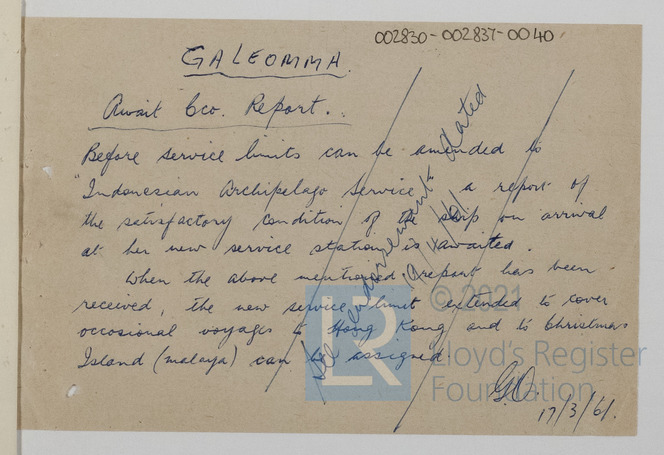 002830-002837-0040
GALEOMMA.
Await Cco. Report.
Before service limits can be amended to
"Indonesian Archipelago Service" a report of
the satisfactory condition of the ship on arrival
at her new service station is awaited.
When the above mentioned report has been
received, the new service limit extended to cover
occasional voyages to Hong Kong and to Christmas
Island (Malaya) can be assigned
See endorsement dated
9/4/61
G.O.
17/3/61.
LR
© 2021
Lloyd's Register
Foundation